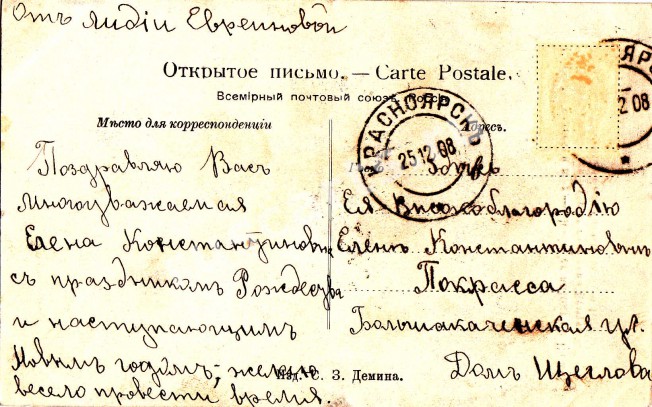 Отъ Лидіи Евреиновой
Открытое письмо. — Carte Postale.
Всемірный почтовый союзъ. Россія.
КРАСНОЯРСКЪ
25 12 08
Мѣсто для корреспонденціи
Адресъ.
Поздравляю Васъ
многоуважаемая
Елена Константиновна
съ праздникомъ Рождества
и наступающимъ
Новымъ годомъ, желаю
весело провести время.
Ея Высокоблагородію
Еленѣ Константиновнѣ
Покрасса
Большакаченская ул.
Домъ Щеглова
Изд. С. З. Демина.